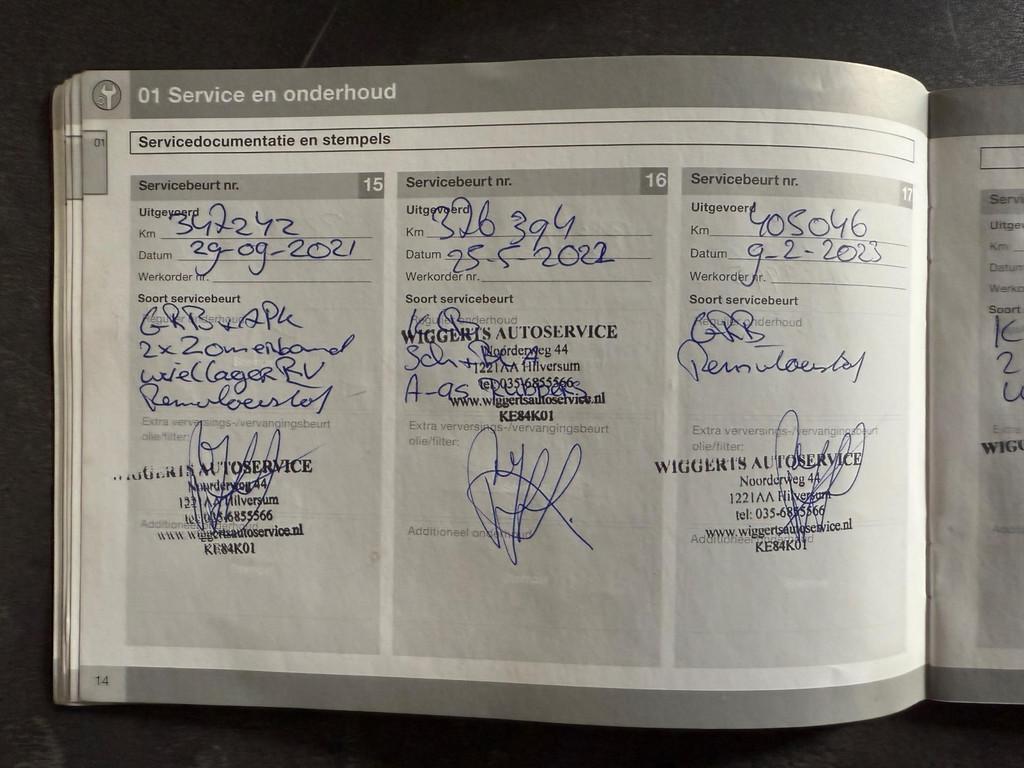 01 Service en onderhoud
01
Servicedocumentatie en stempels
Servicebeurt nr. 15
Uitgevoerd
Km 347242
Datum 29-09-2021
Werkorder nr.
Soort servicebeurt
Regulier onderhoud
GRB + APK
2x Zomerband
wiellager RV
Remvloeistof
Extra verversings-/vervangingsbeurt
olie/filter:
WIGGERTS AUTOSERVICE
Noorderweg 44
1221AA Hilversum
tel: 035-6855566
Additioneel onderhoud
www.wiggertsautoservice.nl
KE84K01
Servicebeurt nr. 16
Uitgevoerd
Km 376394
Datum 25-5-2022
Werkorder nr.
Soort servicebeurt
Regulier onderhoud
WIGGERTS AUTOSERVICE
Noorderweg 44
1221AA Hilversum
tel: 035-6855566
www.wiggertsautoservice.nl
A-as
KE84K01
Extra verversings-/vervangingsbeurt
olie/filter:
Additioneel onderhoud
Servicebeurt nr. 17
Uitgevoerd
Km 405046
Datum 9-2-2023
Werkorder nr.
Soort servicebeurt
Regulier onderhoud
GRB
Remvloeistof
Extra verversings-/vervangingsbeurt
olie/filter:
WIGGERTS AUTOSERVICE
Noorderweg 44
1221AA Hilversum
tel: 035-6855566
www.wiggertsautoservice.nl
Additioneel onderhoud
KE84K01
14